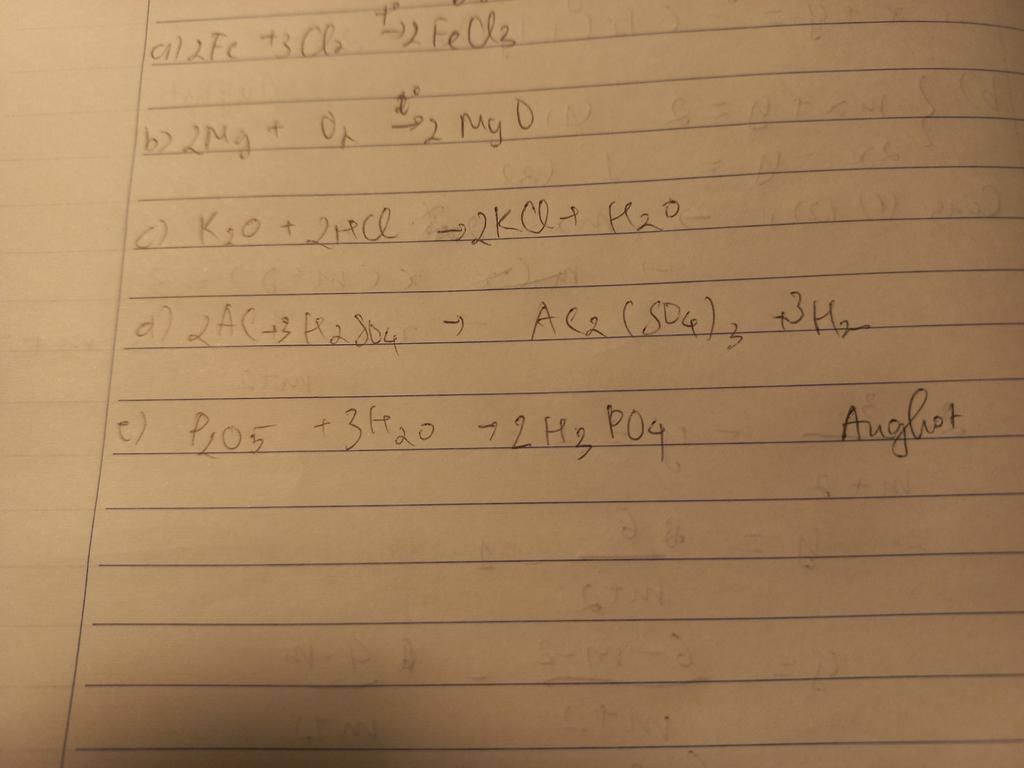 a) 2Fe + 3Cl₂ t°→ 2FeCl₃
b) 2Mg + O₂ t°→ 2MgO
c) K₂O + 2HCl → 2KCl + H₂O
d) 2Al + 3H₂SO₄ → Al₂(SO₄)₃ + 3H₂
e) P₂O₅ + 3H₂O → 2H₃PO₄ Aughot